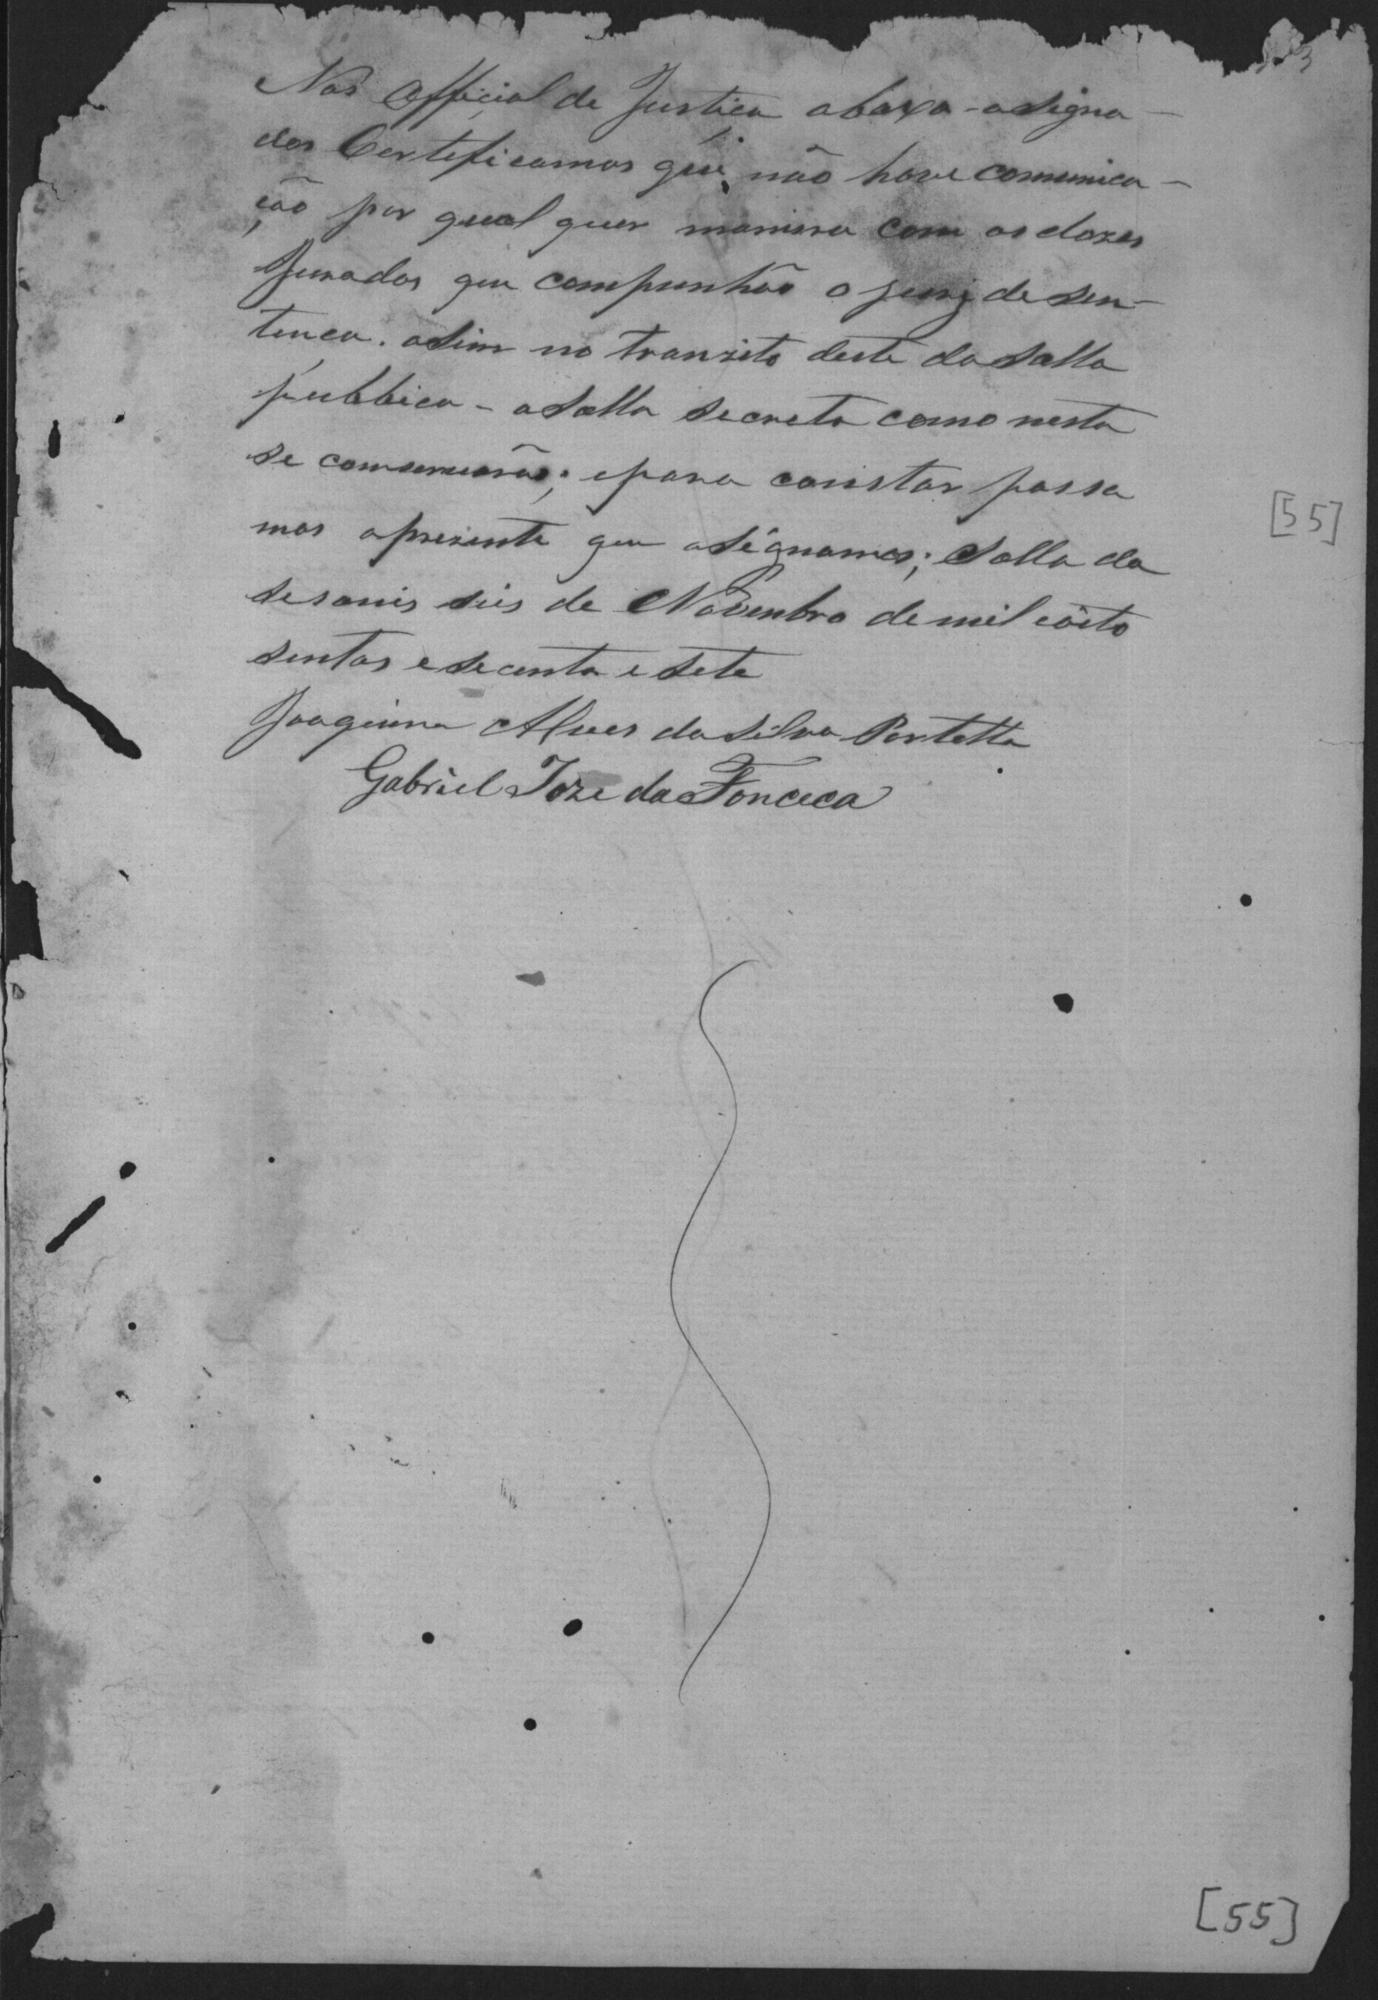 Nos Official de Justica abaxo-asigna-
dos Certeficamos que não hove comunica-
ção por qual quer maniera com os dozes
Jurados que compunhão o jury de sen-
tença. asim no tranzito deste da Salla
publica - a Salla secreta como nesta
se comservarão; epara constar passa
mos aprezente que asignamos; Salla da
sesonis seis de Novembro de mil eoito
sentos e secenta e sete
Joaquim Alves da Silva Portella
Gabriel Joze da Fonceca
[55]
[55]